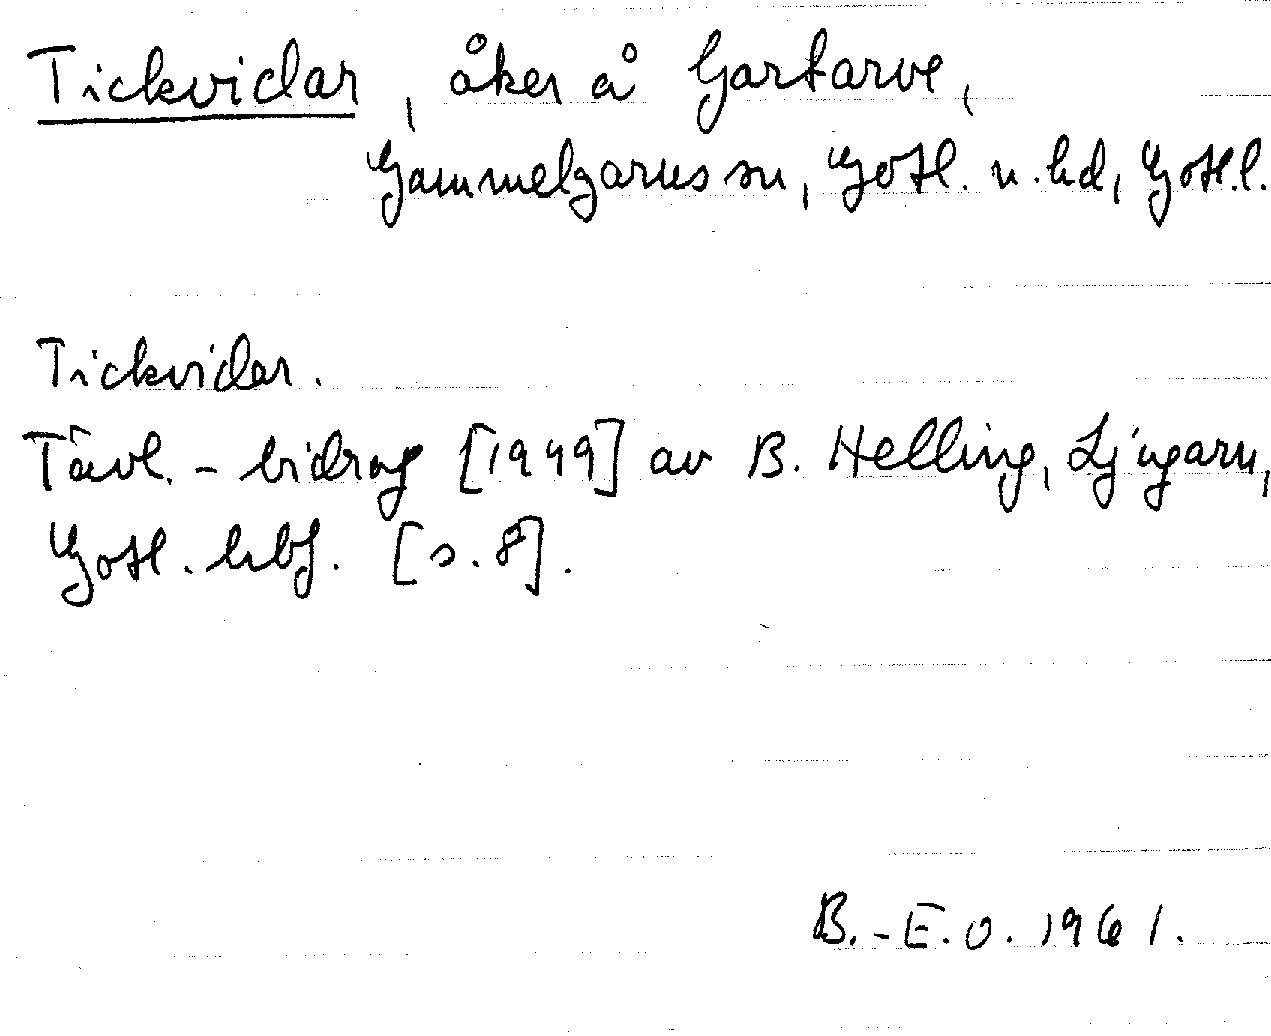 Tickvidar, åker å Gartarve,
Gammelgarns sn, Gotl. n. hd, Gotl. l.
Tickvidar.
Tävl.-bidrag [1949] av B. Helling, Ljugarn,
Gotl. hbf. [s. 8].
B.-E.O. 1961.